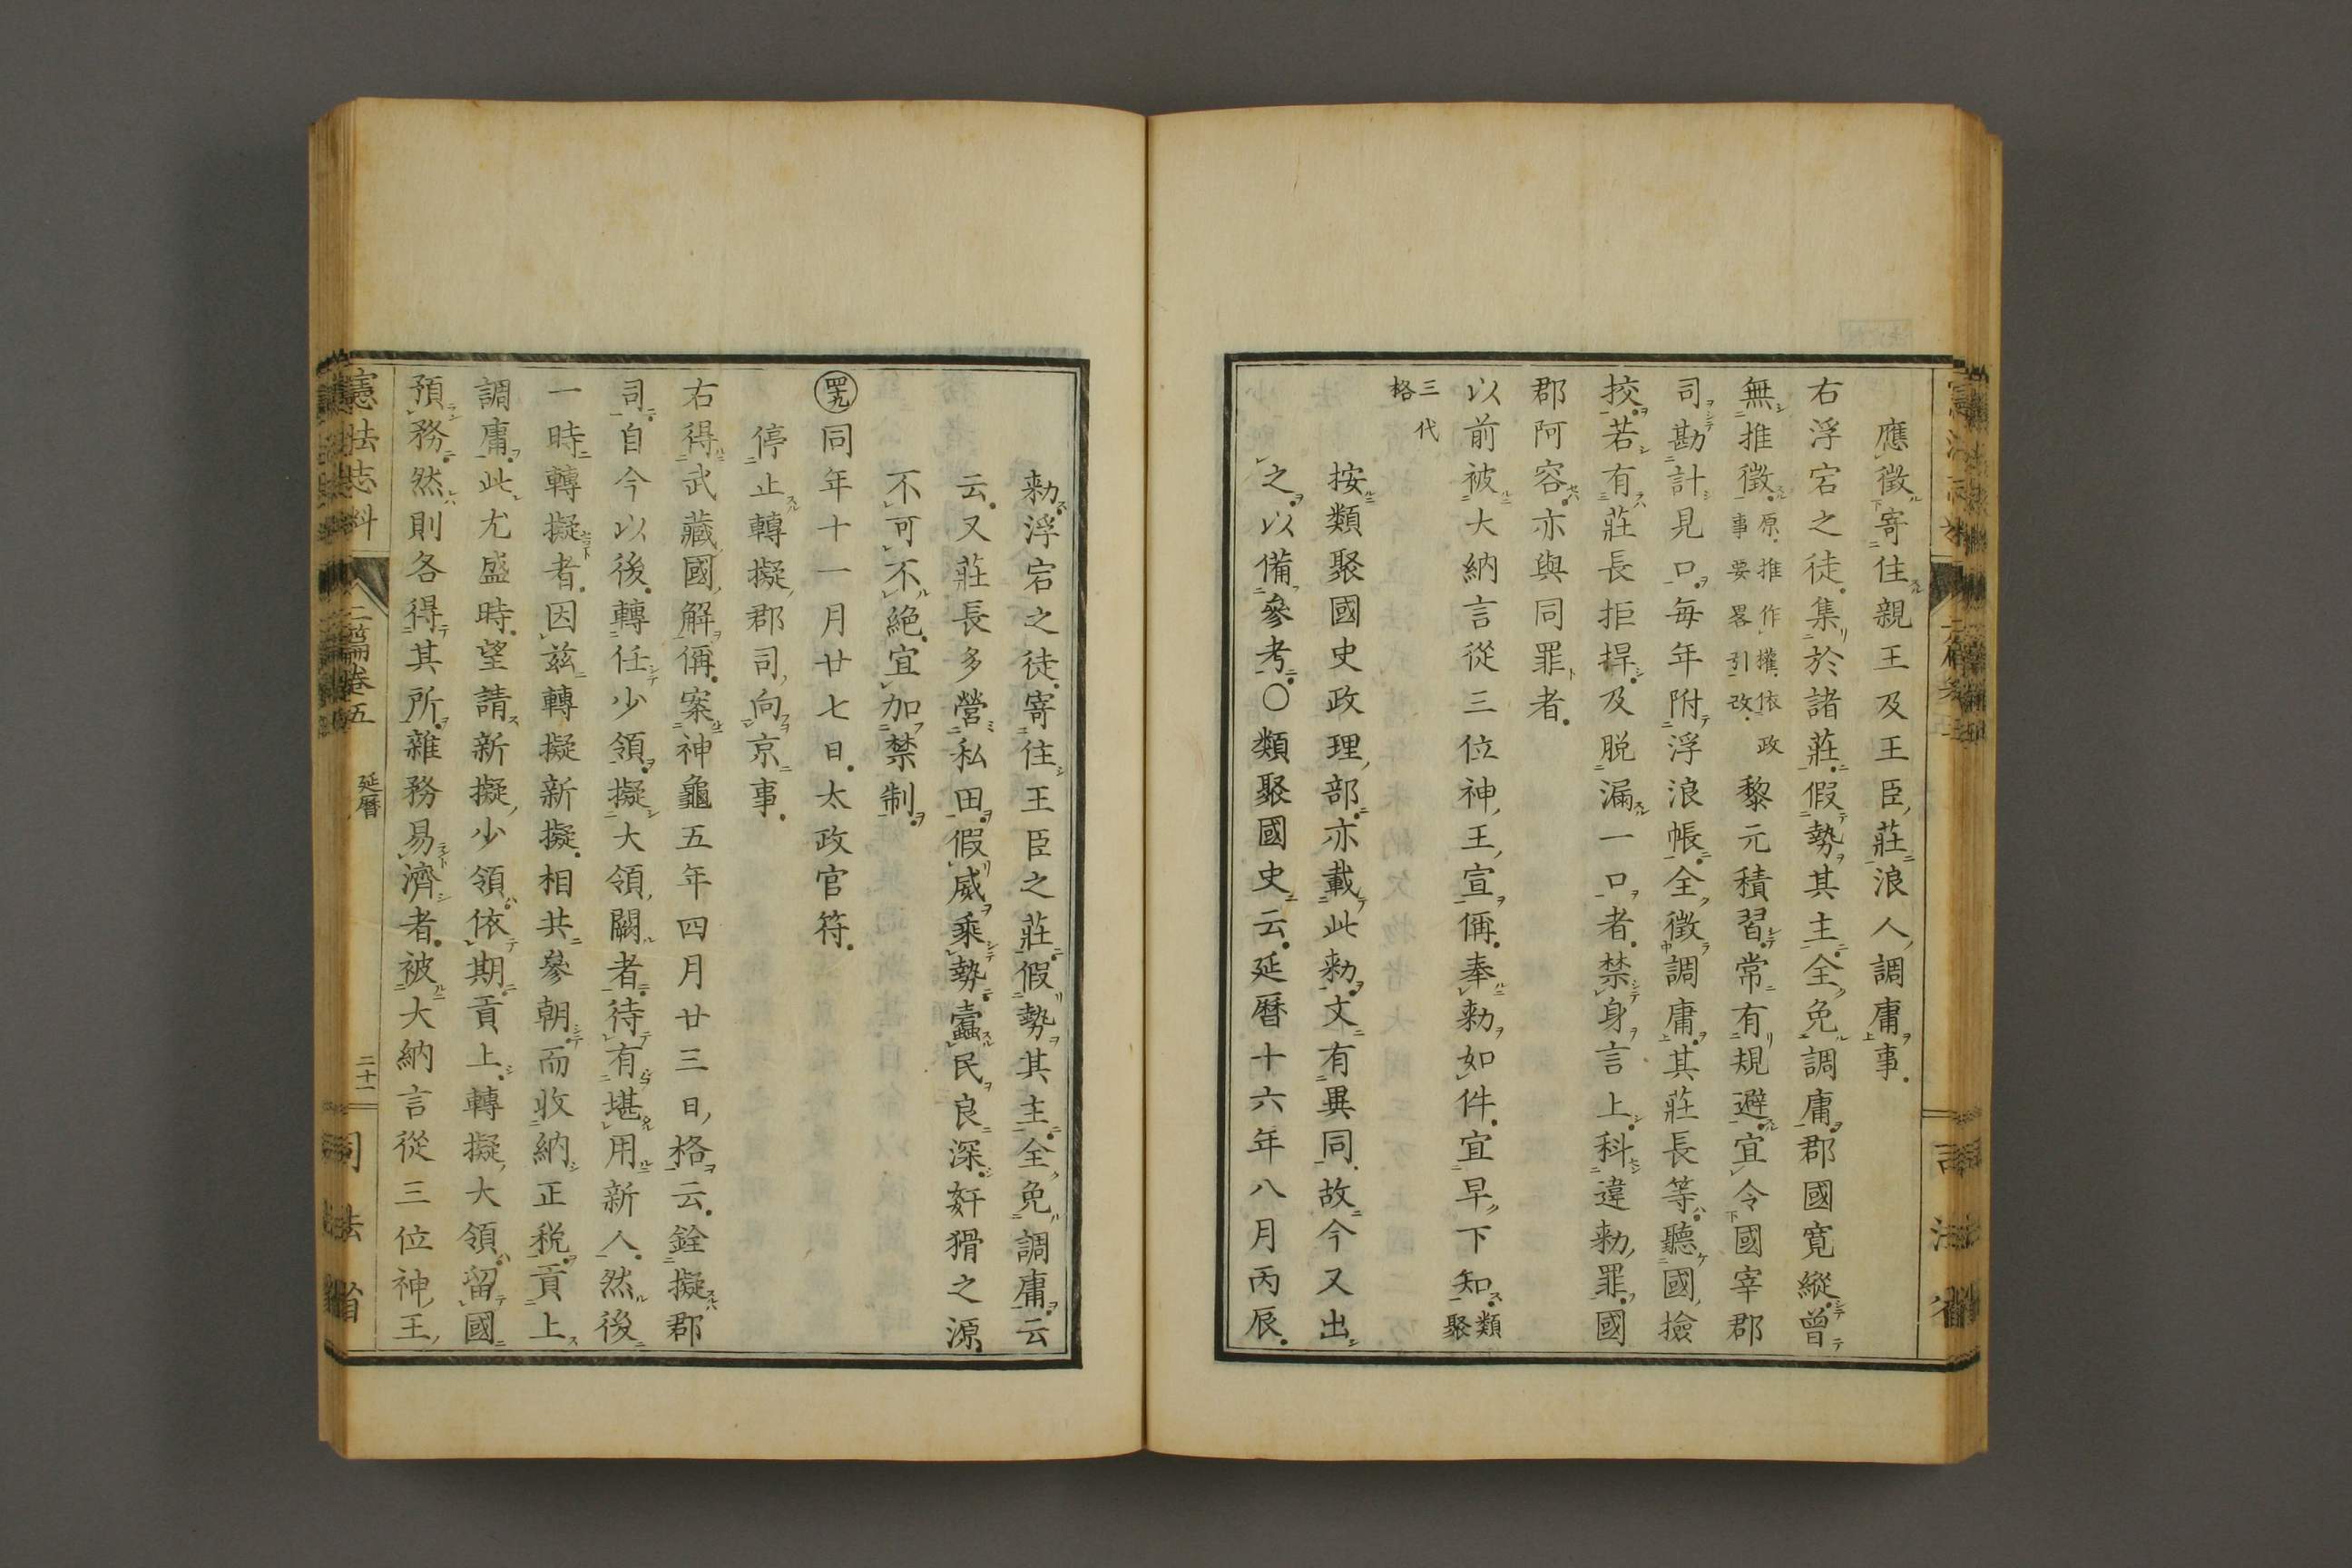 應徵寄住親王及王臣莊浪人調庸事
右浮宕之徒集於諸莊假勢其主全免調庸郡國寬縱曾
無推徵原推作㩲依政事要畧引改黎元積習常有規避宜令國宰郡
司勘計見口每年附浮浪帳全徵調庸其莊長等聽國撿
挍若有莊長拒捍及脱漏一口者禁身言上科違勅罪國
郡阿容亦與同罪者
以前被大納言從三位神王宣偁奉勅如件宜早下知類聚
三代格
按類聚國史政理部亦載此勅文有異同故今又出
之以備參考○類聚國史云延曆十六年八月丙辰
勅浮宕之徒寄住王臣之莊假勢其主全免調庸云
云又莊長多營私田假威乘勢蠧民良深姧猾之源
不可不絕宜加禁制
四九同年十一月廿七日太政官符
停止轉擬郡司向京事
右得武藏國解偁案神龜五年四月廿三日格云銓擬郡
司自今以後轉任少領擬大領闕者待有堪用新人然後
一時轉擬者因茲轉擬新擬相共參朝而收納正税貢上
調庸此尤盛時望請新擬少領依期貢上轉擬大領留國
預務然則各得其所雜務易濟者被大納言從三位神王
憲法志料 二篇卷五 延曆 二十一 司法省